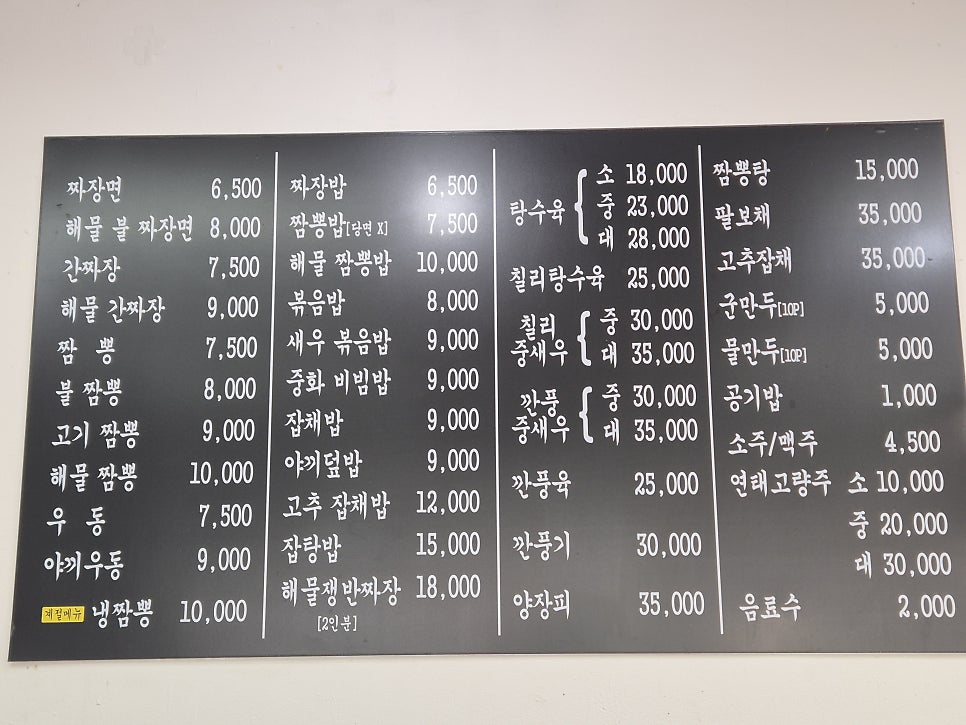 짜장면 6,500
해물 불 짜장면 8,000
간짜장 7,500
해물 간짜장 9,000
짬 뽕 7,500
불 짬뽕 8,000
고기 짬뽕 9,000
해물 짬뽕 10,000
우 동 7,500
야끼우동 9,000
계절메뉴 냉짬뽕 10,000
짜장밥 6,500
짬뽕밥[당면 X] 7,500
해물 짬뽕밥 10,000
볶음밥 8,000
새우 볶음밥 9,000
중화 비빔밥 9,000
잡채밥 9,000
야끼덮밥 9,000
고추 잡채밥 12,000
잡탕밥 15,000
해물쟁반짜장 18,000
[2인분]
탕수육 { 소 18,000
중 23,000
대 28,000
칠리탕수육 25,000
칠리 { 중 30,000
중새우 대 35,000
깐풍 { 중 30,000
중새우 대 35,000
깐풍육 25,000
깐풍기 30,000
양장피 35,000
짬뽕탕 15,000
팔보채 35,000
고추잡채 35,000
군만두[10P] 5,000
물만두[10P] 5,000
공기밥 1,000
소주/맥주 4,500
연태고량주 소 10,000
중 20,000
대 30,000
음료수 2,000